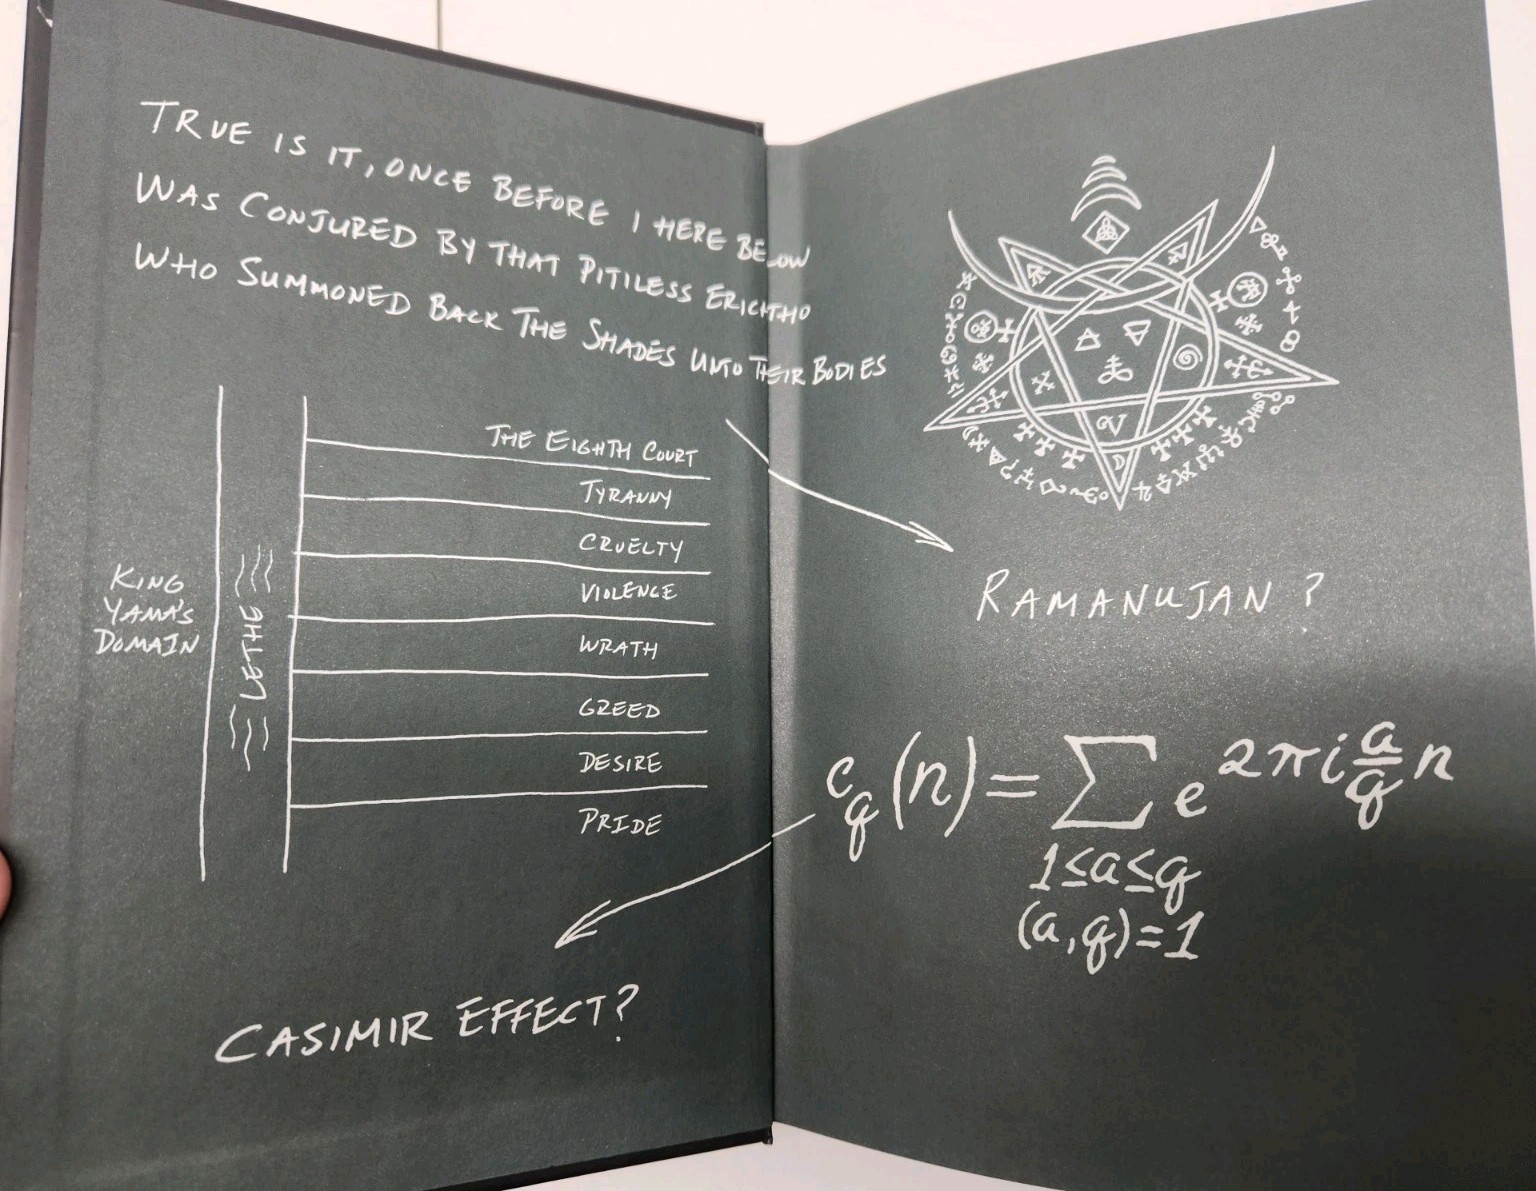 TRUE IS IT, ONCE BEFORE I HERE BELOW
WAS CONJURED BY THAT PITILESS ERICHTHO
WHO SUMMONED BACK THE SHADES UNTO THEIR BODIES
THE EIGHTH COURT
TYRANNY
CRUELTY
VIOLENCE
WRATH
GREED
DESIRE
PRIDE
KING
YAMA'S
DOMAIN
LETHE
CASIMIR EFFECT?
RAMANUJAN?
c_q(n) = ∑ e^{2πi a/q n}
1≤a≤q
(a,q)=1